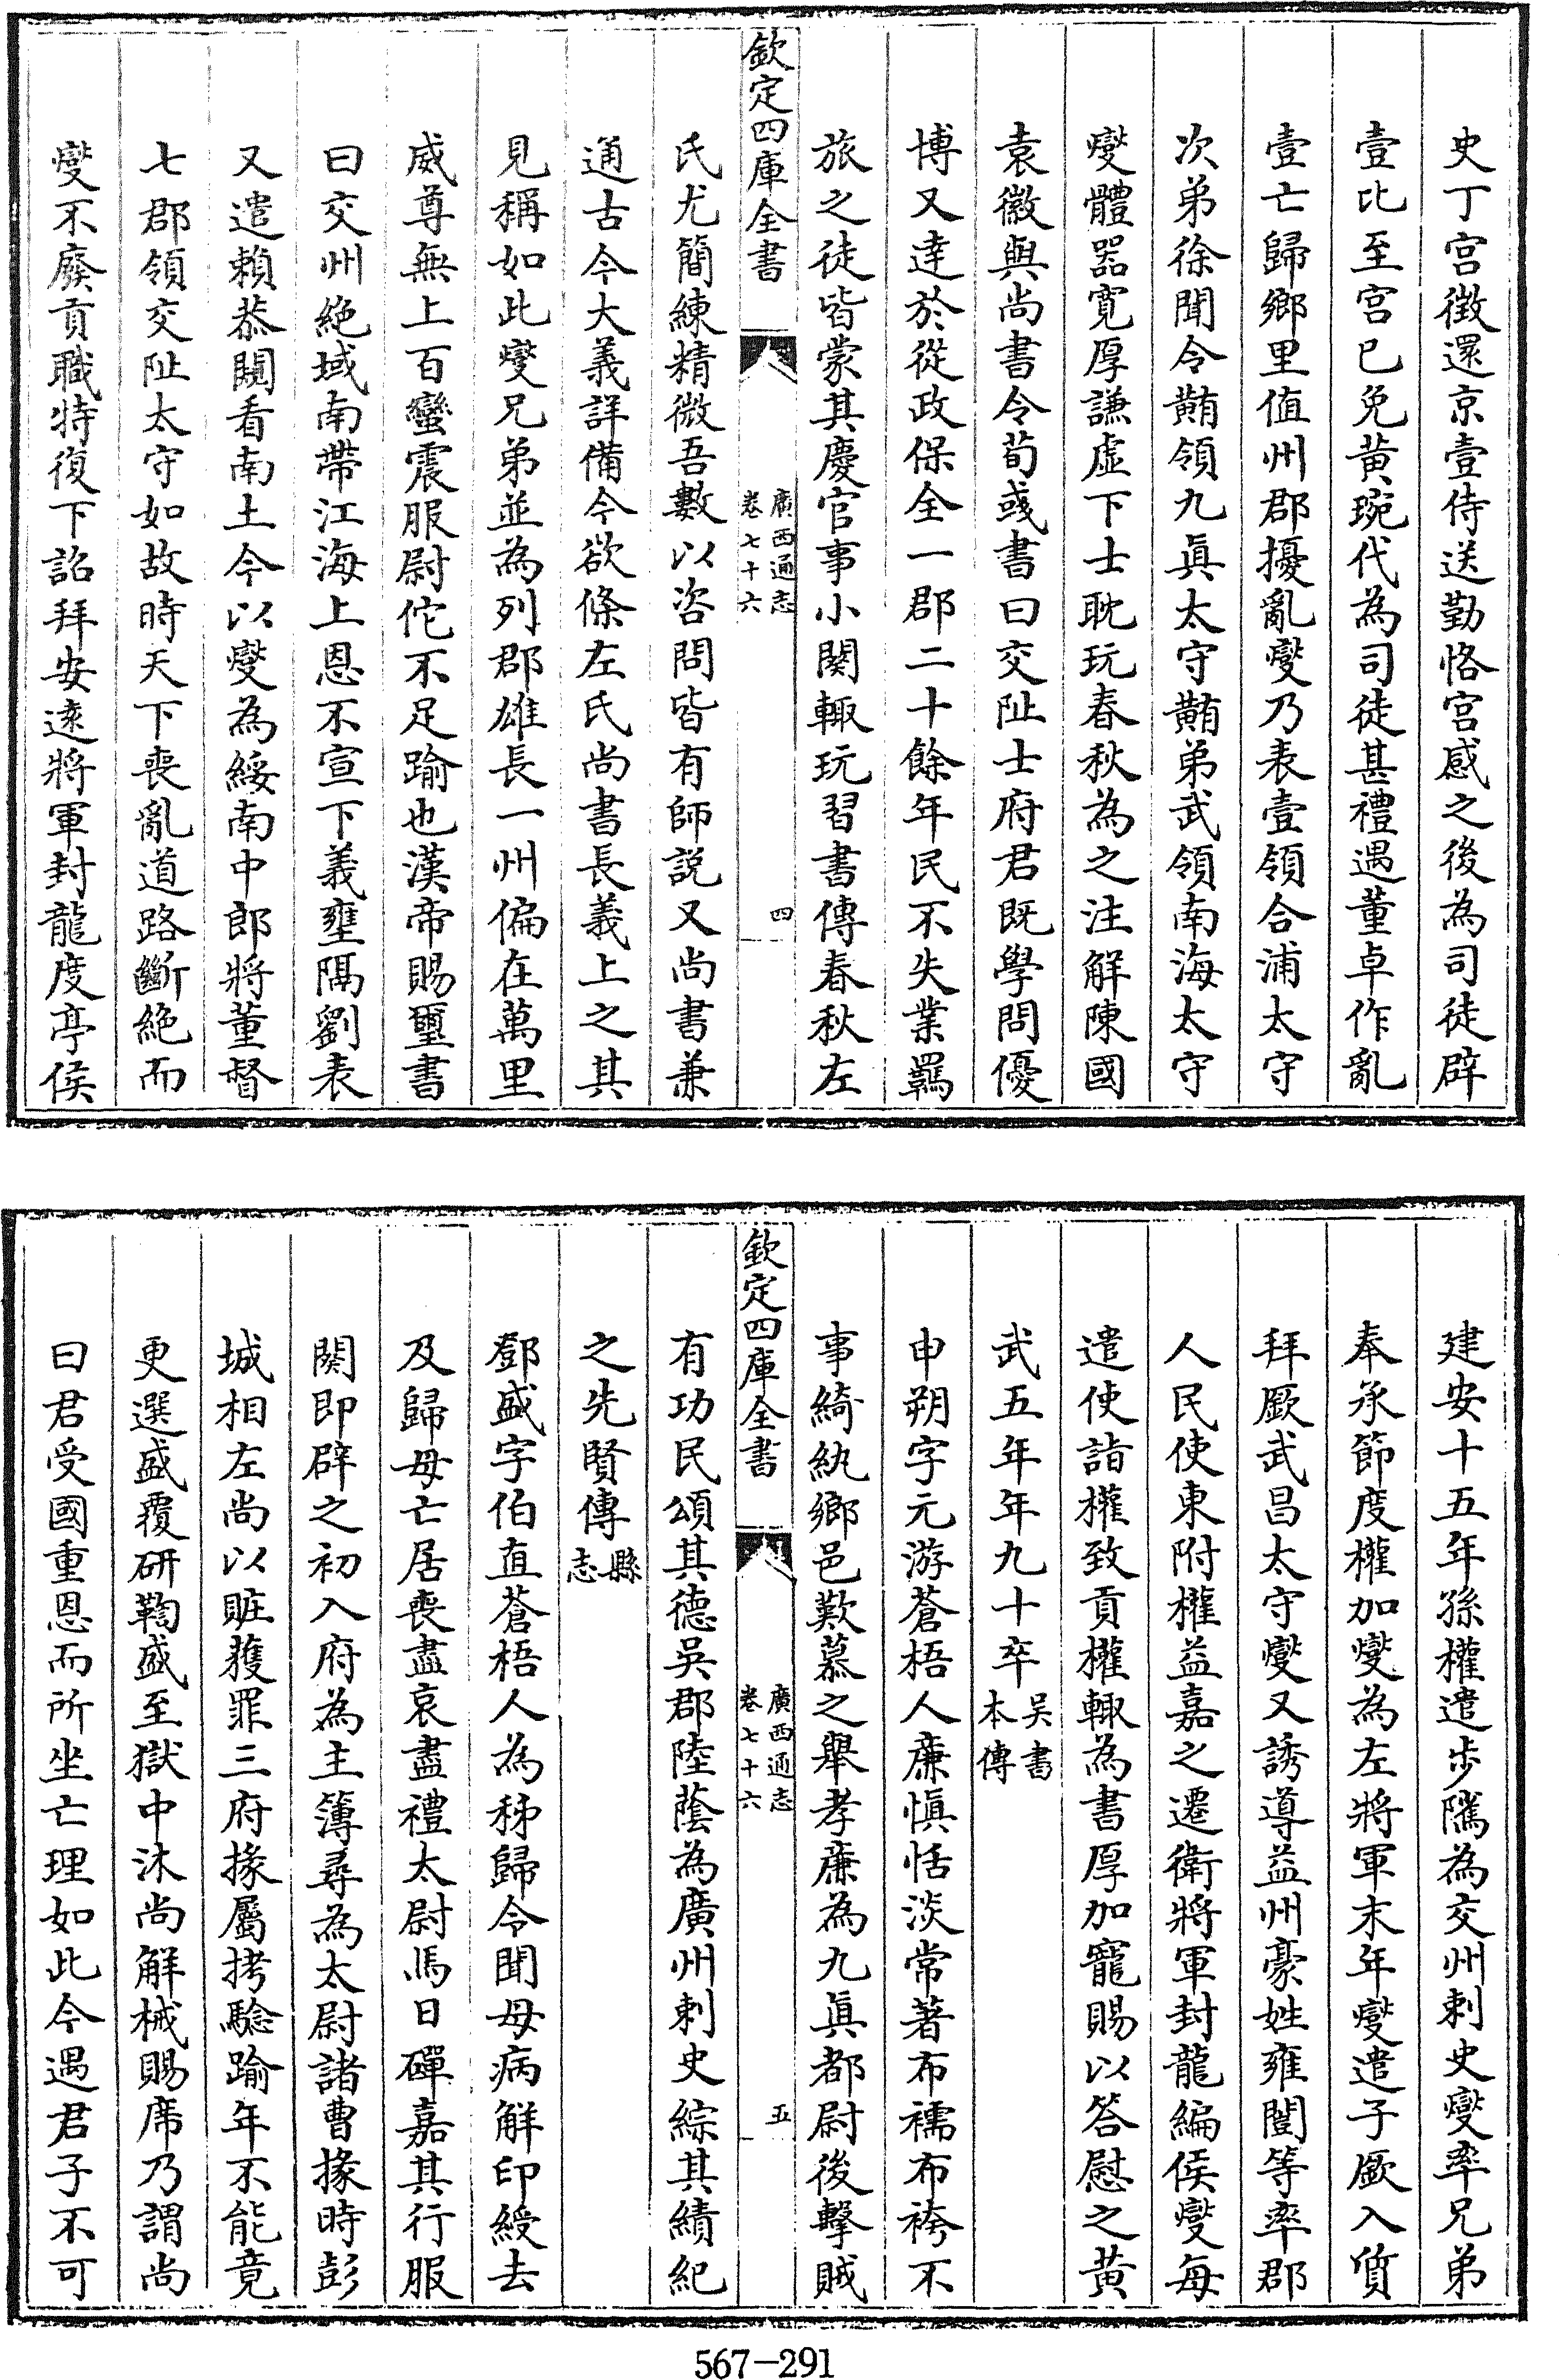 史丁宫徴還京壹侍送勤恪宫感之後為司徒辟
壹比至宫已免黄琬代為司徒甚禮遇董卓作亂
壹亡歸鄉里值州郡擾亂燮乃表壹領合浦太守
次弟徐聞令䵋領九真太守䵋弟武領南海太守
燮體器寛厚謙虚下士耽玩春秋為之注解陳國
袁徽與尚書令荀彧書曰交阯士府君既學問優
博又逹於從政保全一郡二十餘年民不失業羈
旅之徒皆蒙其慶官事小闋輙玩習書傳春秋左
欽定四庫全書
廣西通志
卷七十六
四
氏尤簡練精微吾數以咨問皆有師説又尚書兼
通古今大義詳備今欲條左氏尚書長義上之其
見稱如此燮兄弟並為列郡雄長一州偏在萬里
威尊無上百蠻震服尉佗不足踰也漢帝賜璽書
曰交州絶域南帶江海上恩不宣下義壅隔劉表
又遣賴恭闚看南土今以燮為綏南中郎將董督
七郡領交阯太守如故時天下喪亂道路斷絶而
燮不廢貢職特復下詔拜安逺將軍封龍度亭侯
建安十五年孫權遣歩隲為交州刺史燮率兄弟
奉承節度權加燮為左將軍末年燮遣子廞入質
拜廞武昌太守燮又誘導益州豪姓雍闓等率郡
人民使東附權益嘉之遷衛將軍封龍編侯燮每
遣使詣權致貢權輙為書厚加寵賜以答慰之黄
武五年年九十卒吴書本傳
申朔字元游蒼梧人亷慎恬淡常著布襦布袴不
事綺紈鄉邑歎慕之舉孝亷為九真都尉後擊賊
欽定四庫全書
廣西通志
卷七十六
五
有功民頌其德吳郡陸䕃為廣州刺史綜其績紀
之先賢傳縣志
鄧盛字伯直蒼梧人為秭歸令聞母病解印綬去
及歸母亡居喪盡哀盡禮太尉馬日磾嘉其行服
闋即辟之初入府為主簿尋為太尉諸曹掾時彭
城相左尚以贓獲罪三府掾屬拷驗踰年不能竟
更選盛覆研鞫盛至獄中沐尚解械賜席乃謂尚
曰君受國重恩而所坐亡理如此今遇君子不可
567-291